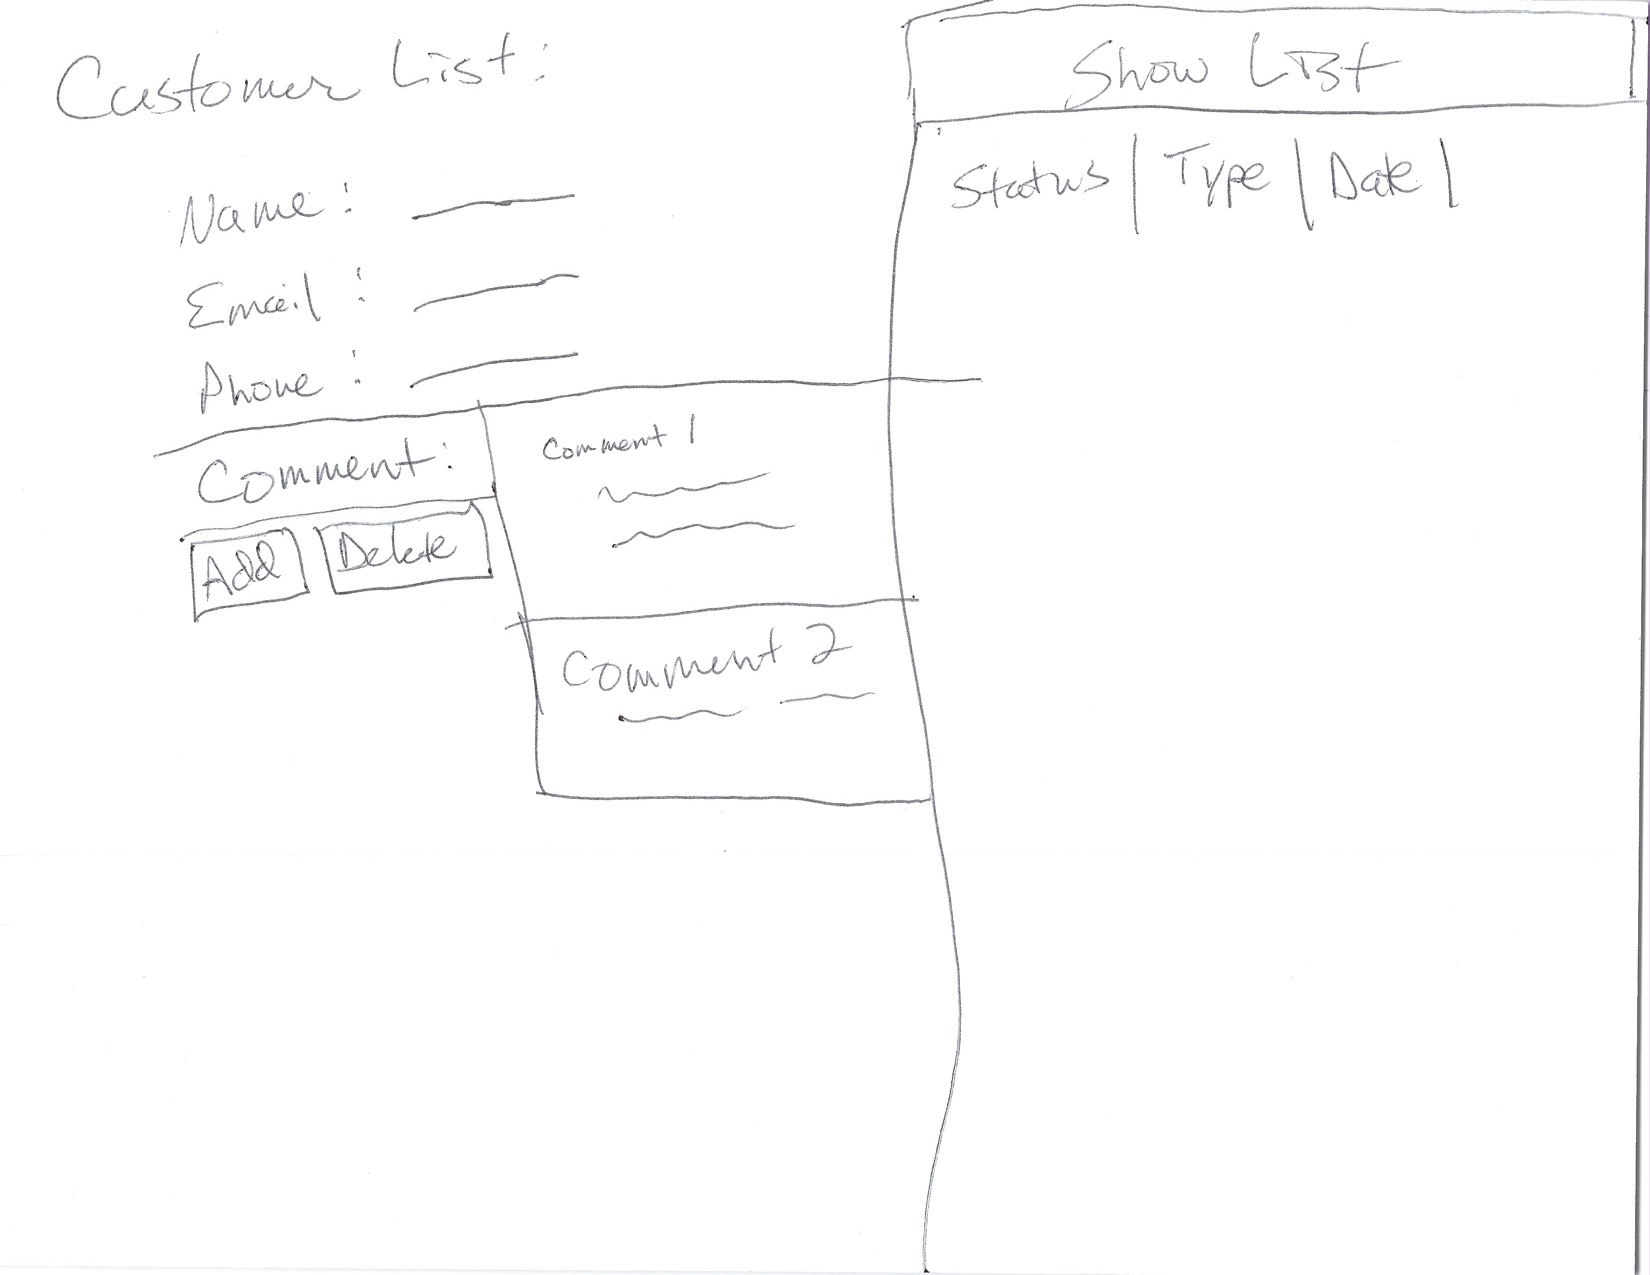 Customer List:
Name:
Email:
Phone:
Comment:
Add Delete
Comment 1
Comment 2
Show List
Status | Type | Date |